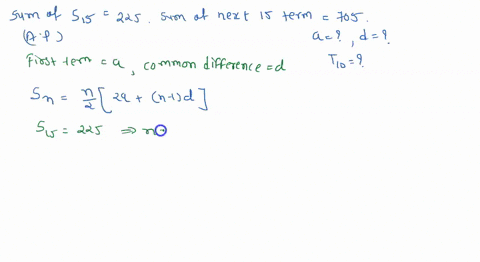 Sum of S15 = 225. Sum of next 15 term = 705.
(A.P) a = ?, d = ?
First term = a, common difference = d T10 = ?
Sn = n/2 [2a + (n-1)d]
S15 = 225 ⇒ n